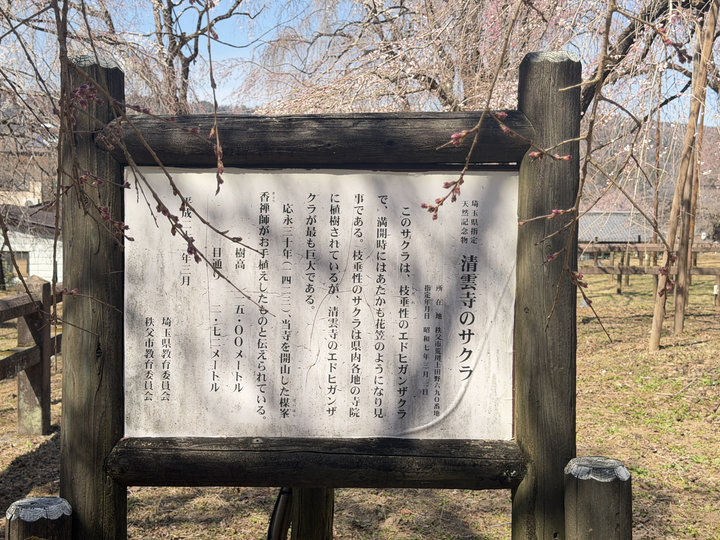 埼玉県指定
天然記念物
清雲寺のサクラ
所在地 秩父市荒川上田野六九〇番地
指定年月日 昭和七年三月三一日
このサクラは、枝垂性のエドヒガンザクラ
で、満開時にはあたかも花笠のようになり見
事である。枝垂性のサクラは県内各地の寺院
に植樹されているが、清雲寺のエドヒガンザ
クラが最も巨大である。
応永三十年(一四二三)、当寺を開山した楳峯
香禅師がお手植えしたものと伝えられている。
樹高 一五・〇〇メートル
目通り 三・七二メートル
平成二十 年三月
埼玉県教育委員会
秩父市教育委員会